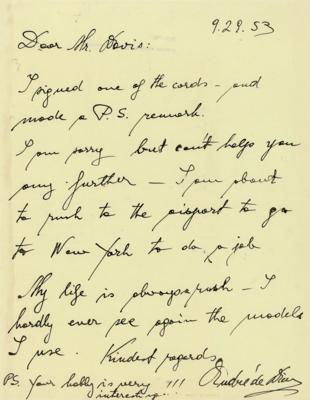 9.29.53
Dear Mr. Davis:
I signed one of the cards - and
made a P.S. remark.
I am sorry but can't help you
any further - I am about
to rush to the airport to go
to New York to do a job
My life is always a rush - I
hardly ever see again the models
I use. Kindest regards
André de Dienes
PS. Your hobby is very !!!
interesting...